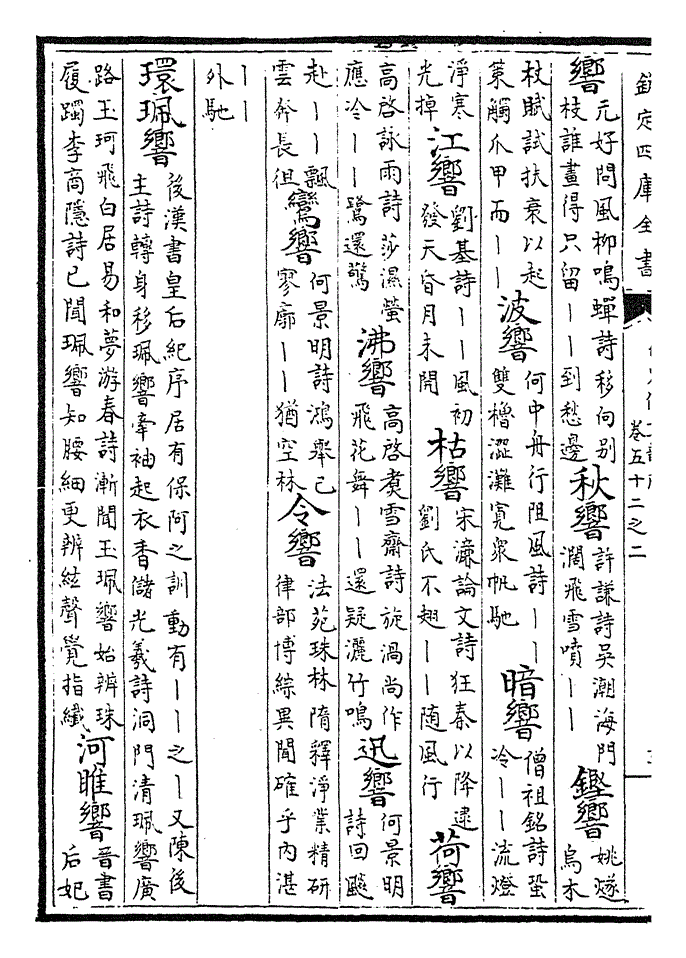 欽定四庫全書
卷五十二之二
響元好問風柳鳴蟬詩移向別枝誰畫得只留丨丨到愁邊秋響許謙詩吳潮海門濶飛雪噴丨丨鏗響姚燧烏木
杖賦試扶衰以起策觸爪甲而丨丨波響何中舟行阻風詩丨丨雙櫓澀灘寛衆帆馳暗響僧祖銘詩蛩冷丨丨流燈
淨寒光掉江響劉基詩丨丨風初發天昏月未開枯響宋濂論文詩狂秦以降逮劉氏不翅丨丨随風行荷響
高啓詠雨詩莎濕螢應冷丨丨鷺還驚沸響高啓煑雪齋詩旋渦尚作飛花舞丨丨還疑灑竹鳴迅響何景明詩回飈
赴丨丨飄雲奔長徂鸞響何景明詩鴻舉已寥廓丨丨猶空林令響法苑珠林隋釋淨業精研律部博綜異聞確乎內湛
丨丨外馳
環珮響後漢書皇后紀序居有保阿之訓動有丨丨之丨又陳後主詩轉身移珮響牽袖起衣香儲光羲詩洞門清珮響廣
路玉珂飛白居易和夢游春詩漸聞玉珮響始辨珠履躅李商隱詩已聞珮響知腰細更辨絃聲覺指纖河雎響晉書后妃